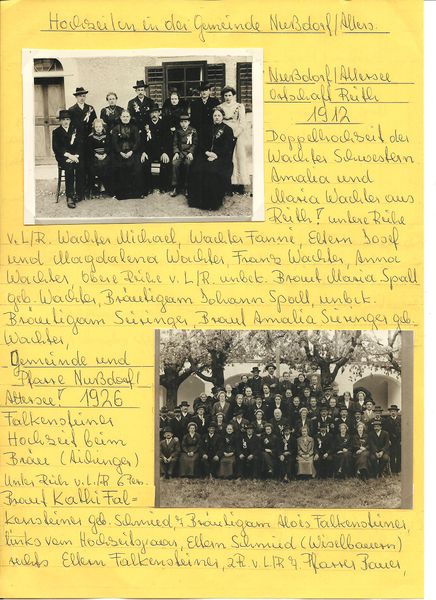 Hochzeiten in der Gemeinde Nußdorf/Atters.
Nußdorf/Attersee
Ortschaft Reith
1912
Doppelhochzeit der
Wachter Schwestern
Amalia und
Maria Wachter aus
Reith! untere Reihe
v. L/R. Wachter Michael, Wachter Fanni, Eltern Josef
und Magdalena Wachter, Franz Wachter, Anna
Wachter, obere Reihe v. L/R. unbek. Braut Maria Spoll
geb. Wachter, Bräutigam Johann Spoll, unbek.
Bräutigam Süringer, Braut Amalia Süringer geb.
Wachter,
Gemeinde und
Pfarre Nußdorf/
Attersee! 1926
Falkensteiner
Hochzeit beim
Bräu (Aichinger)
Unter Reihe v. L/R 6 Per.
Braut Kathi Fal-
kensteiner geb. Schmied & Bräutigam Alois Falkensteiner,
links vom Hochzeitspaar, Eltern Schmied (Wieselbauern)
rechts Eltern Falkensteiner, 2R v. L/R 4. Pfarrer Bauer,